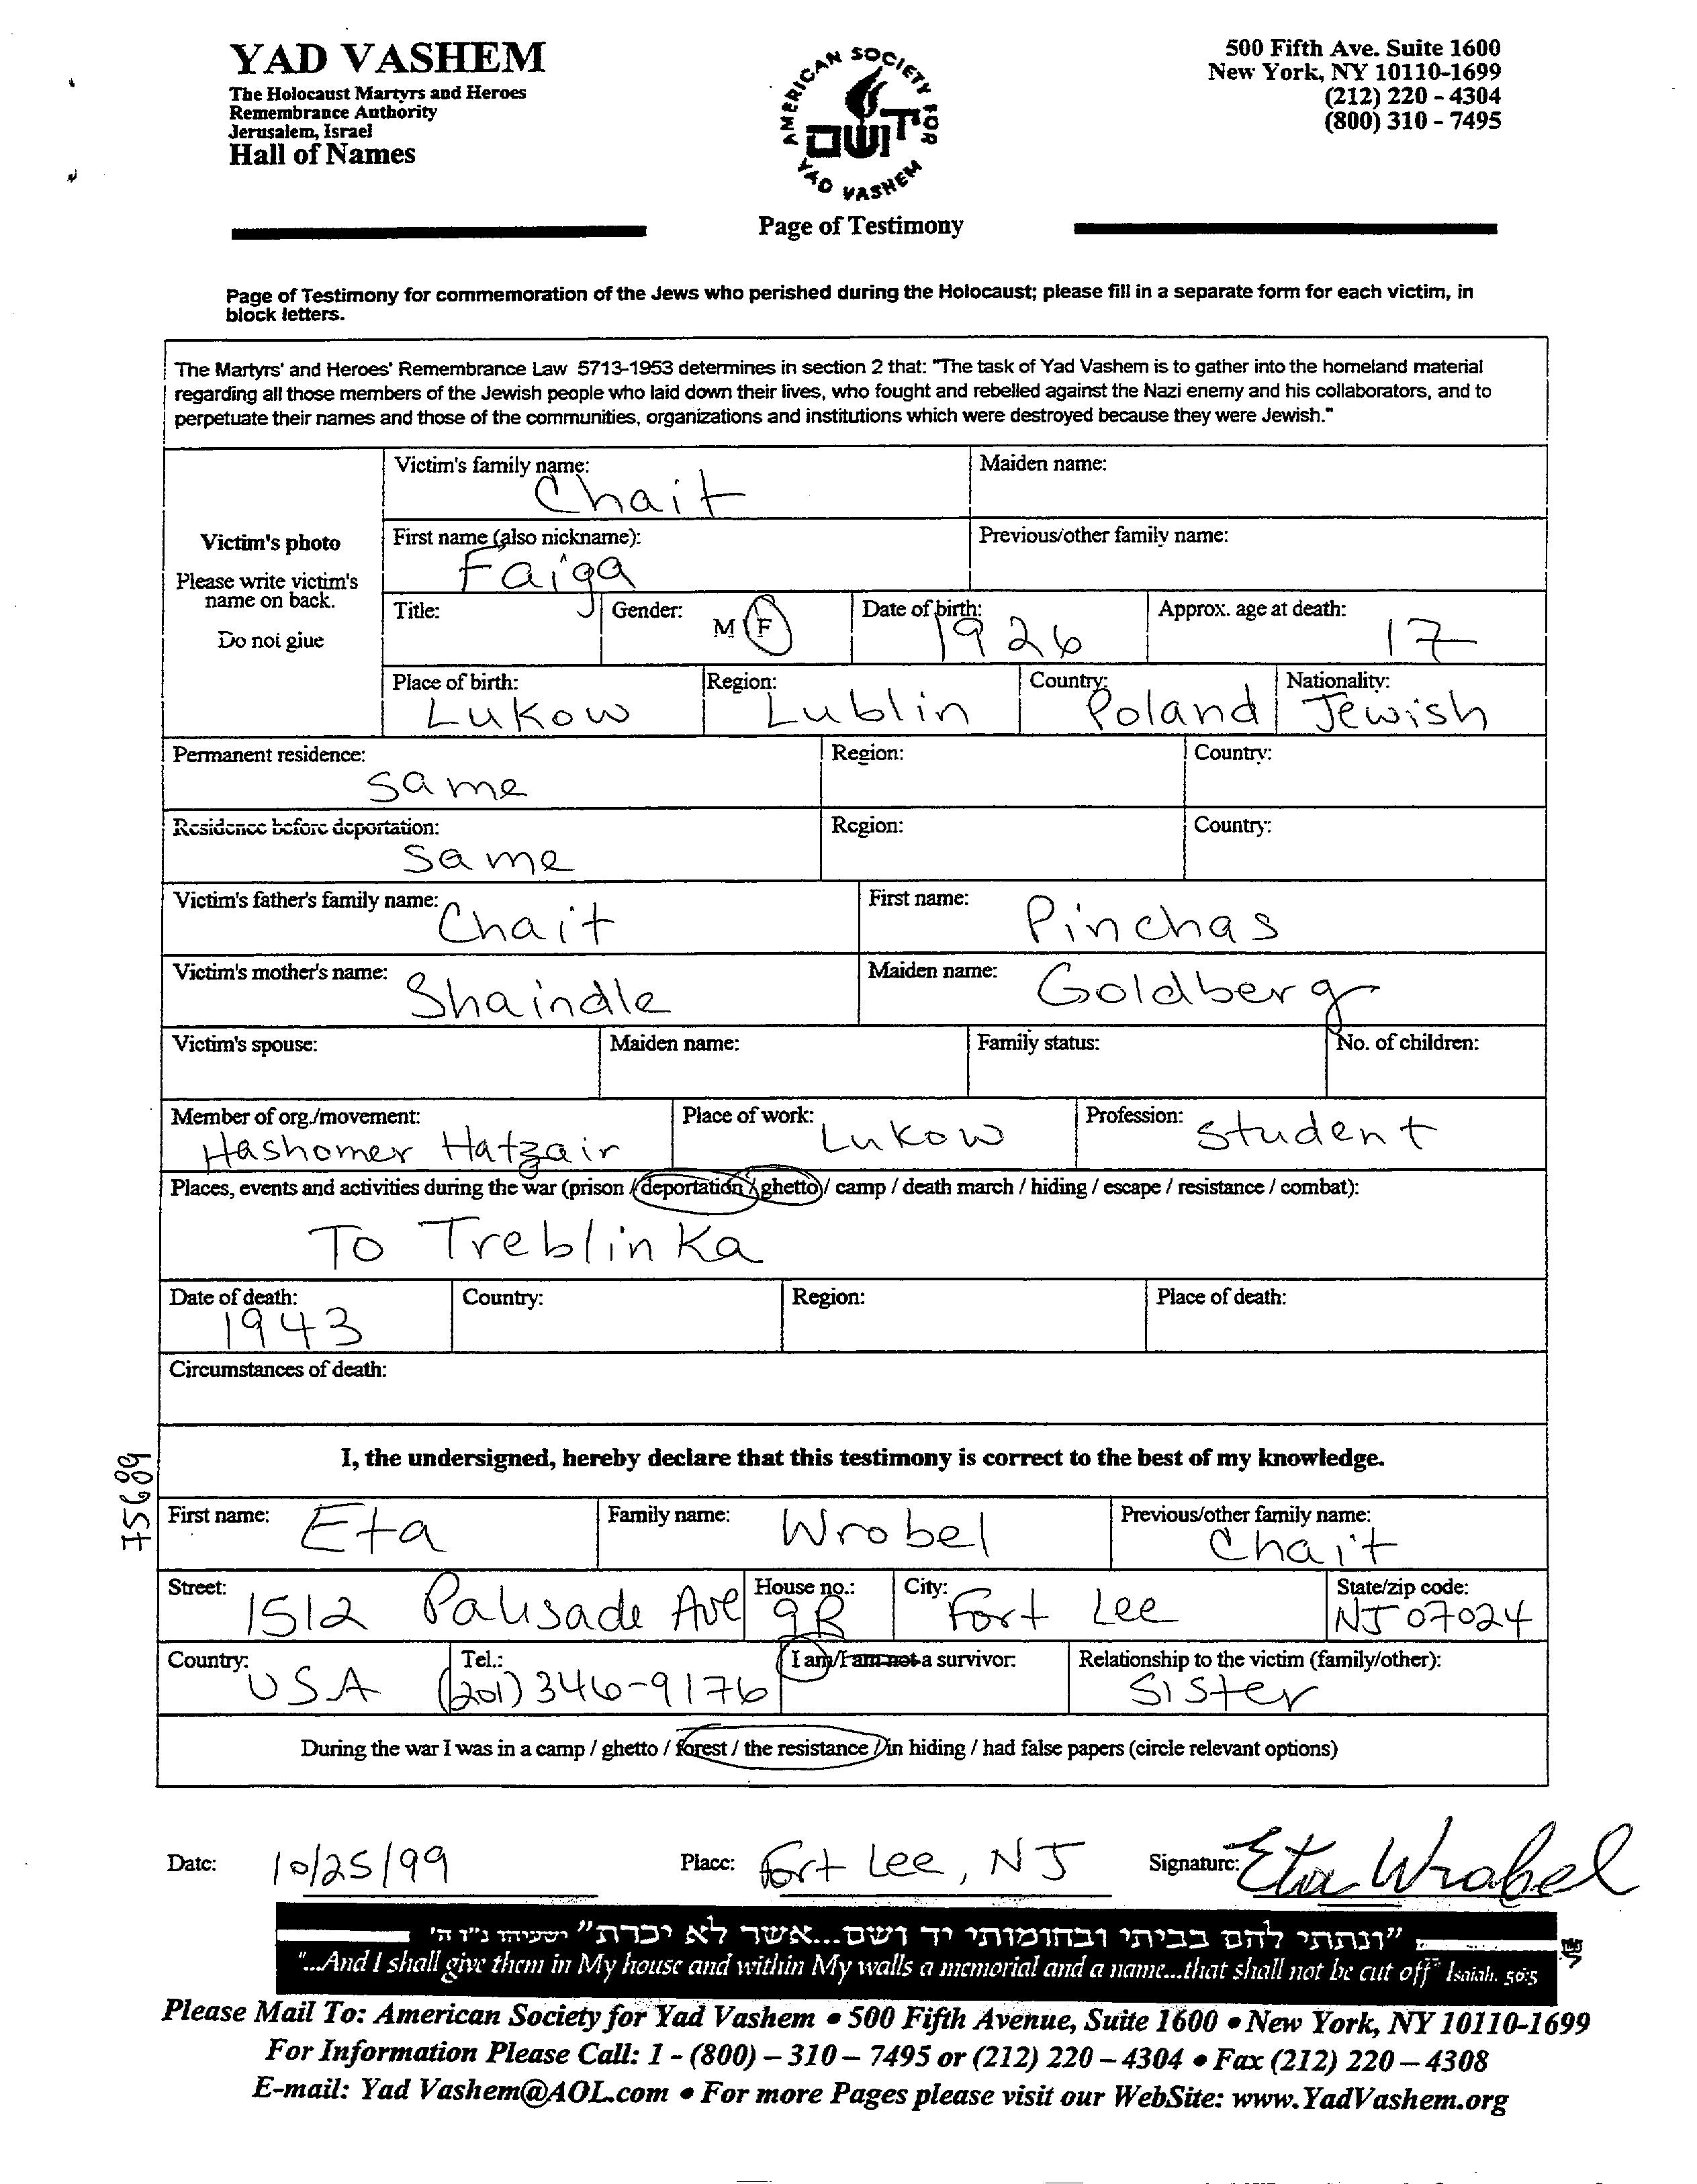 YAD VASHEM
The Holocaust Martyrs and Heroes
Remembrance Authority
Jerusalem, Israel
Hall of Names
AMERICAN SOCIETY FOR
יד ושם
YAD VASHEM
Page of Testimony
500 Fifth Ave. Suite 1600
New York, NY 10110-1699
(212) 220 - 4304
(800) 310 - 7495
Page of Testimony for commemoration of the Jews who perished during the Holocaust; please fill in a separate form for each victim, in
block letters.
The Martyrs' and Heroes' Remembrance Law 5713-1953 determines in section 2 that: "The task of Yad Vashem is to gather into the homeland material
regarding all those members of the Jewish people who laid down their lives, who fought and rebelled against the Nazi enemy and his collaborators, and to
perpetuate their names and those of the communities, organizations and institutions which were destroyed because they were Jewish."
Victim's photo
Please write victim's
name on back.
Do not glue
Victim's family name: Chait
Maiden name:
First name (also nickname): Faiga
Previous/other family name:
Title:
Gender: M F
Date of birth: 1926
Approx. age at death: 17
Place of birth: Lukow
Region: Lublin
Country: Poland
Nationality: Jewish
Permanent residence: same
Region:
Country:
Residence before deportation: same
Region:
Country:
Victim's father's family name: Chait
First name: Pinchas
Victim's mother's name: Shaindle
Maiden name: Goldberg
Victim's spouse:
Maiden name:
Family status:
No. of children:
Member of org./movement: Hashomer Hatzair
Place of work: Lukow
Profession: student
Places, events and activities during the war (prison / deportation / ghetto / camp / death march / hiding / escape / resistance / combat):
To Treblinka
Date of death: 1943
Country:
Region:
Place of death:
Circumstances of death:
I, the undersigned, hereby declare that this testimony is correct to the best of my knowledge.
First name: Eta
Family name: Wrobel
Previous/other family name: Chait
Street: 1512 Palisade Ave
House no.: 9R
City: Fort Lee
State/zip code: NJ 07024
Country: USA
Tel.: (201) 346-9176
I am/I am not a survivor:
Relationship to the victim (family/other): Sister
During the war I was in a camp / ghetto / forest / the resistance / in hiding / had false papers (circle relevant options)
Date: 10/25/99
Place: Fort Lee, NJ
Signature: Eta Wrobel
"ונתתי להם בביתי ובחומותי יד ושם...אשר לא יכרת" ישעיהו נ"ו ה'
"...And I shall give them in My house and within My walls a memorial and a name...that shall not be cut off" Isaiah. 56:5
Please Mail To: American Society for Yad Vashem • 500 Fifth Avenue, Suite 1600 • New York, NY 10110-1699
For Information Please Call: 1 - (800) – 310 – 7495 or (212) 220 – 4304 • Fax (212) 220 – 4308
E-mail: Yad Vashem@AOL.com • For more Pages please visit our WebSite: www.YadVashem.org